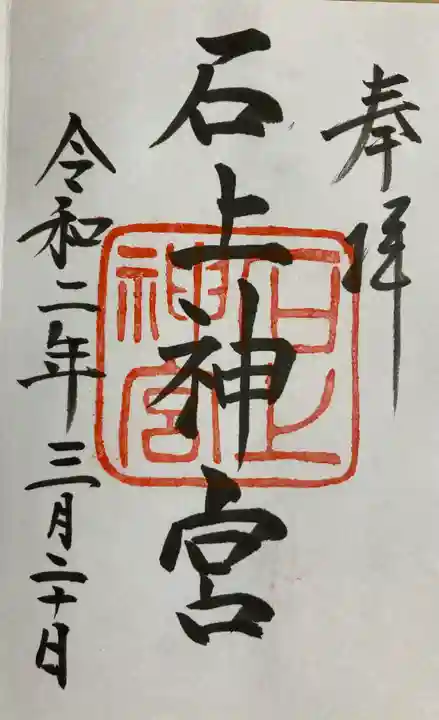 奉拝
石上神宮
石上
神宮
令和二年三月二十日